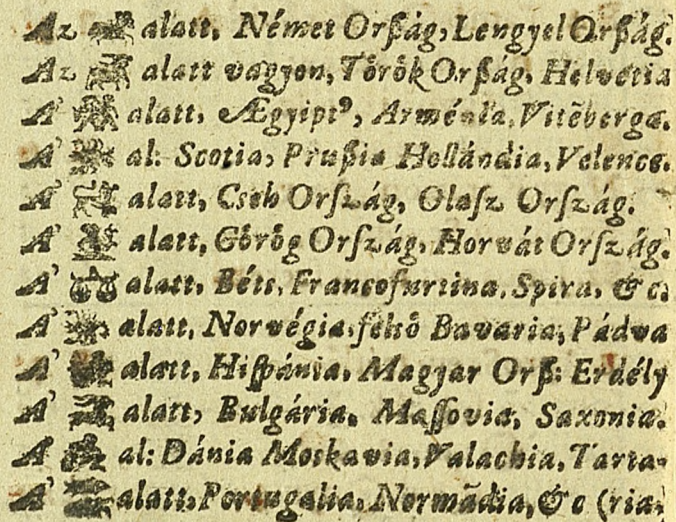 Az alatt, Német Orſzág, Lengyel Orſzág.
Az alatt vagyon, Tőrők Orſzág, Helvétia
A' alatt, Ægyiptꝰ, Arménia, Vitēberga.
A' al: Scotia, Pruſſia Hollándia, Velence.
A' alatt, Cseh Orſzág, Olaſz Orſzág.
A' alatt, Gőrőg Orſzág, Horvát Orſzág.
A' alatt, Béts, Francofurtina, Spira, &c.
A' alatt, Norvégia, felső Bavaria, Pádva
A' alatt, Hiſpánia, Magyar Orſz: Erdély
A' alatt, Bulgária, Maſſovia, Saxonia.
A' al: Dánia Moskavia, Valachia, Tarta-
A' alatt, Portugalia, Normādia, &c (ria.